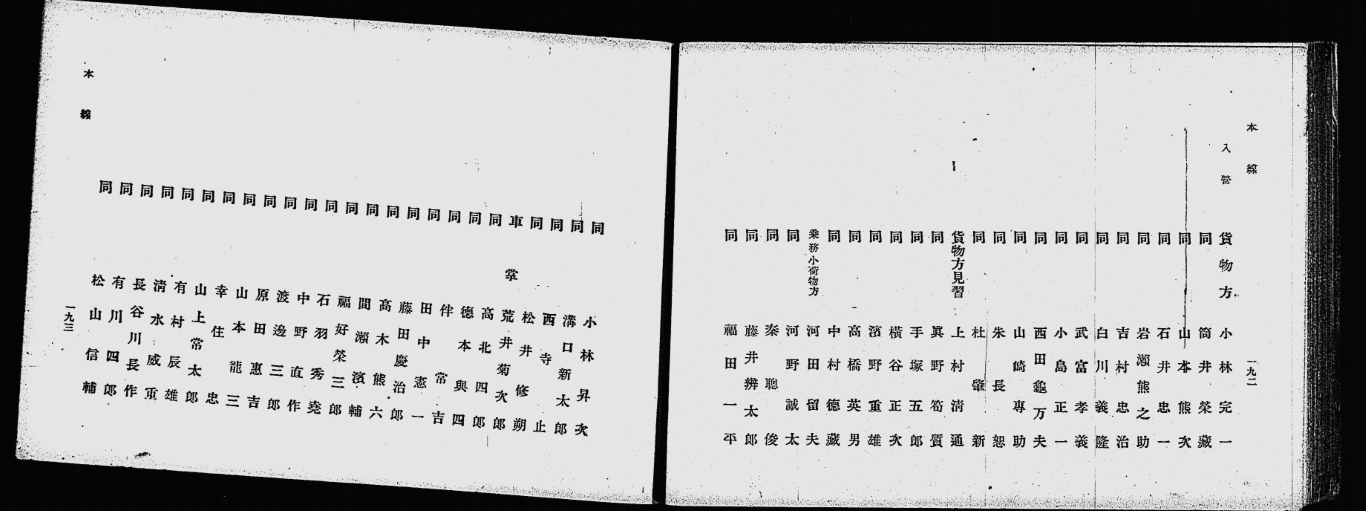 本線
入營
貨物方 小林完一
同 筒井榮藏
同 山本熊次
同 石井忠一
同 岩瀬熊之助
同 吉村忠治
同 白川義隆
同 武富孝義
同 小島正一
同 西田龜万夫
同 山崎専助
同 朱長恕
同 杜肇新
貨物方見習 上村清通
同 眞野筍質
同 手塚五郎
同 横谷正次
同 濱野重雄
同 高橋英男
同 中村德藏
乘務小荷物方 河田留夫
同 河野誠太
同 秦聰俊
同 藤井辨太郎
同 福田一平
一九二
同 小林昇次
同 溝口新太郎
同 西寺止
同 松井修朔
車掌 荒井菊次郎
同 高北四郎
同 德本與四
同 伴常吉
同 田中憲一
同 藤田慶治郎
同 髙木熊六
同 間瀬濱輔
同 福好榮三郎
同 石羽秀堯
同 中野直作
同 渡邊三郎
同 原田惠吉
同 山本龍三
同 幸住忠
同 山上常太郎
同 有村辰雄
同 清水威重
同 長谷川長作
同 有川四郎
同 松山信輔
本線
一九三